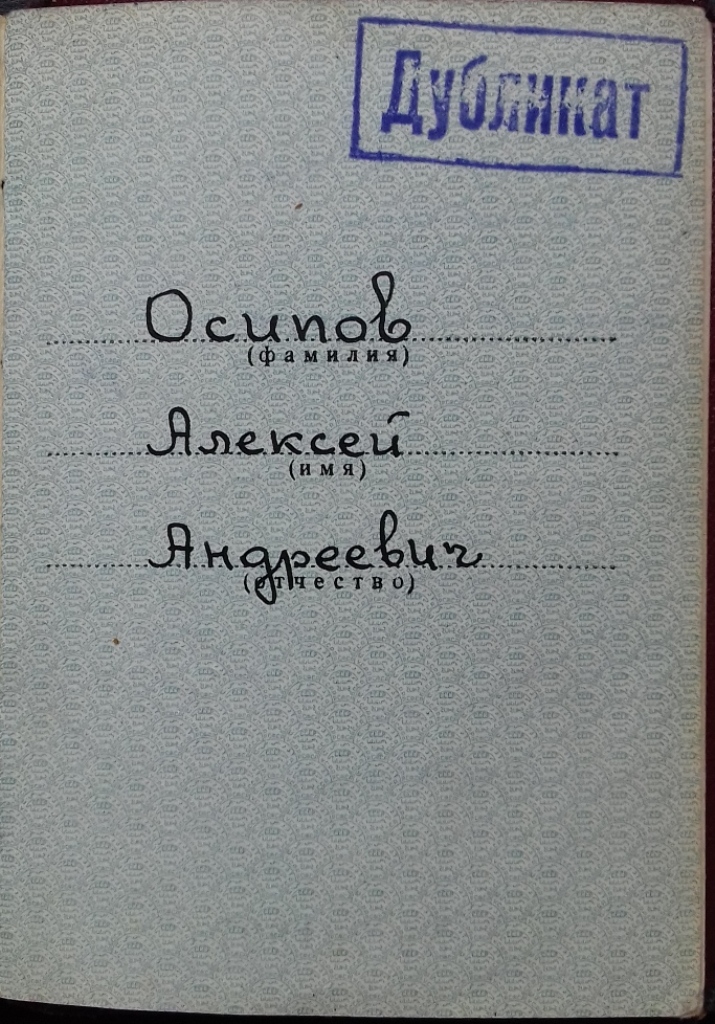 Дубликат
Осипов
(фамилия)
Алексей
(имя)
Андреевич
(отчество)